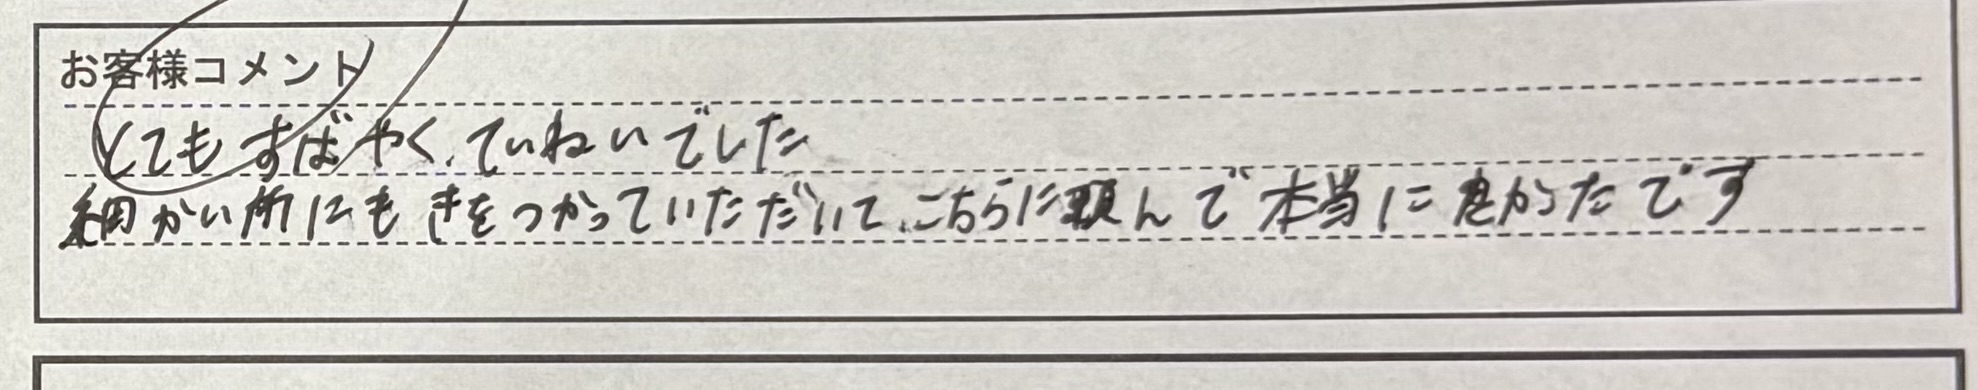 お客様コメント
とてもすばやく、ていねいでした
細かい所にもきをつかっていただいて、こちらに頼んで本当に良かったです